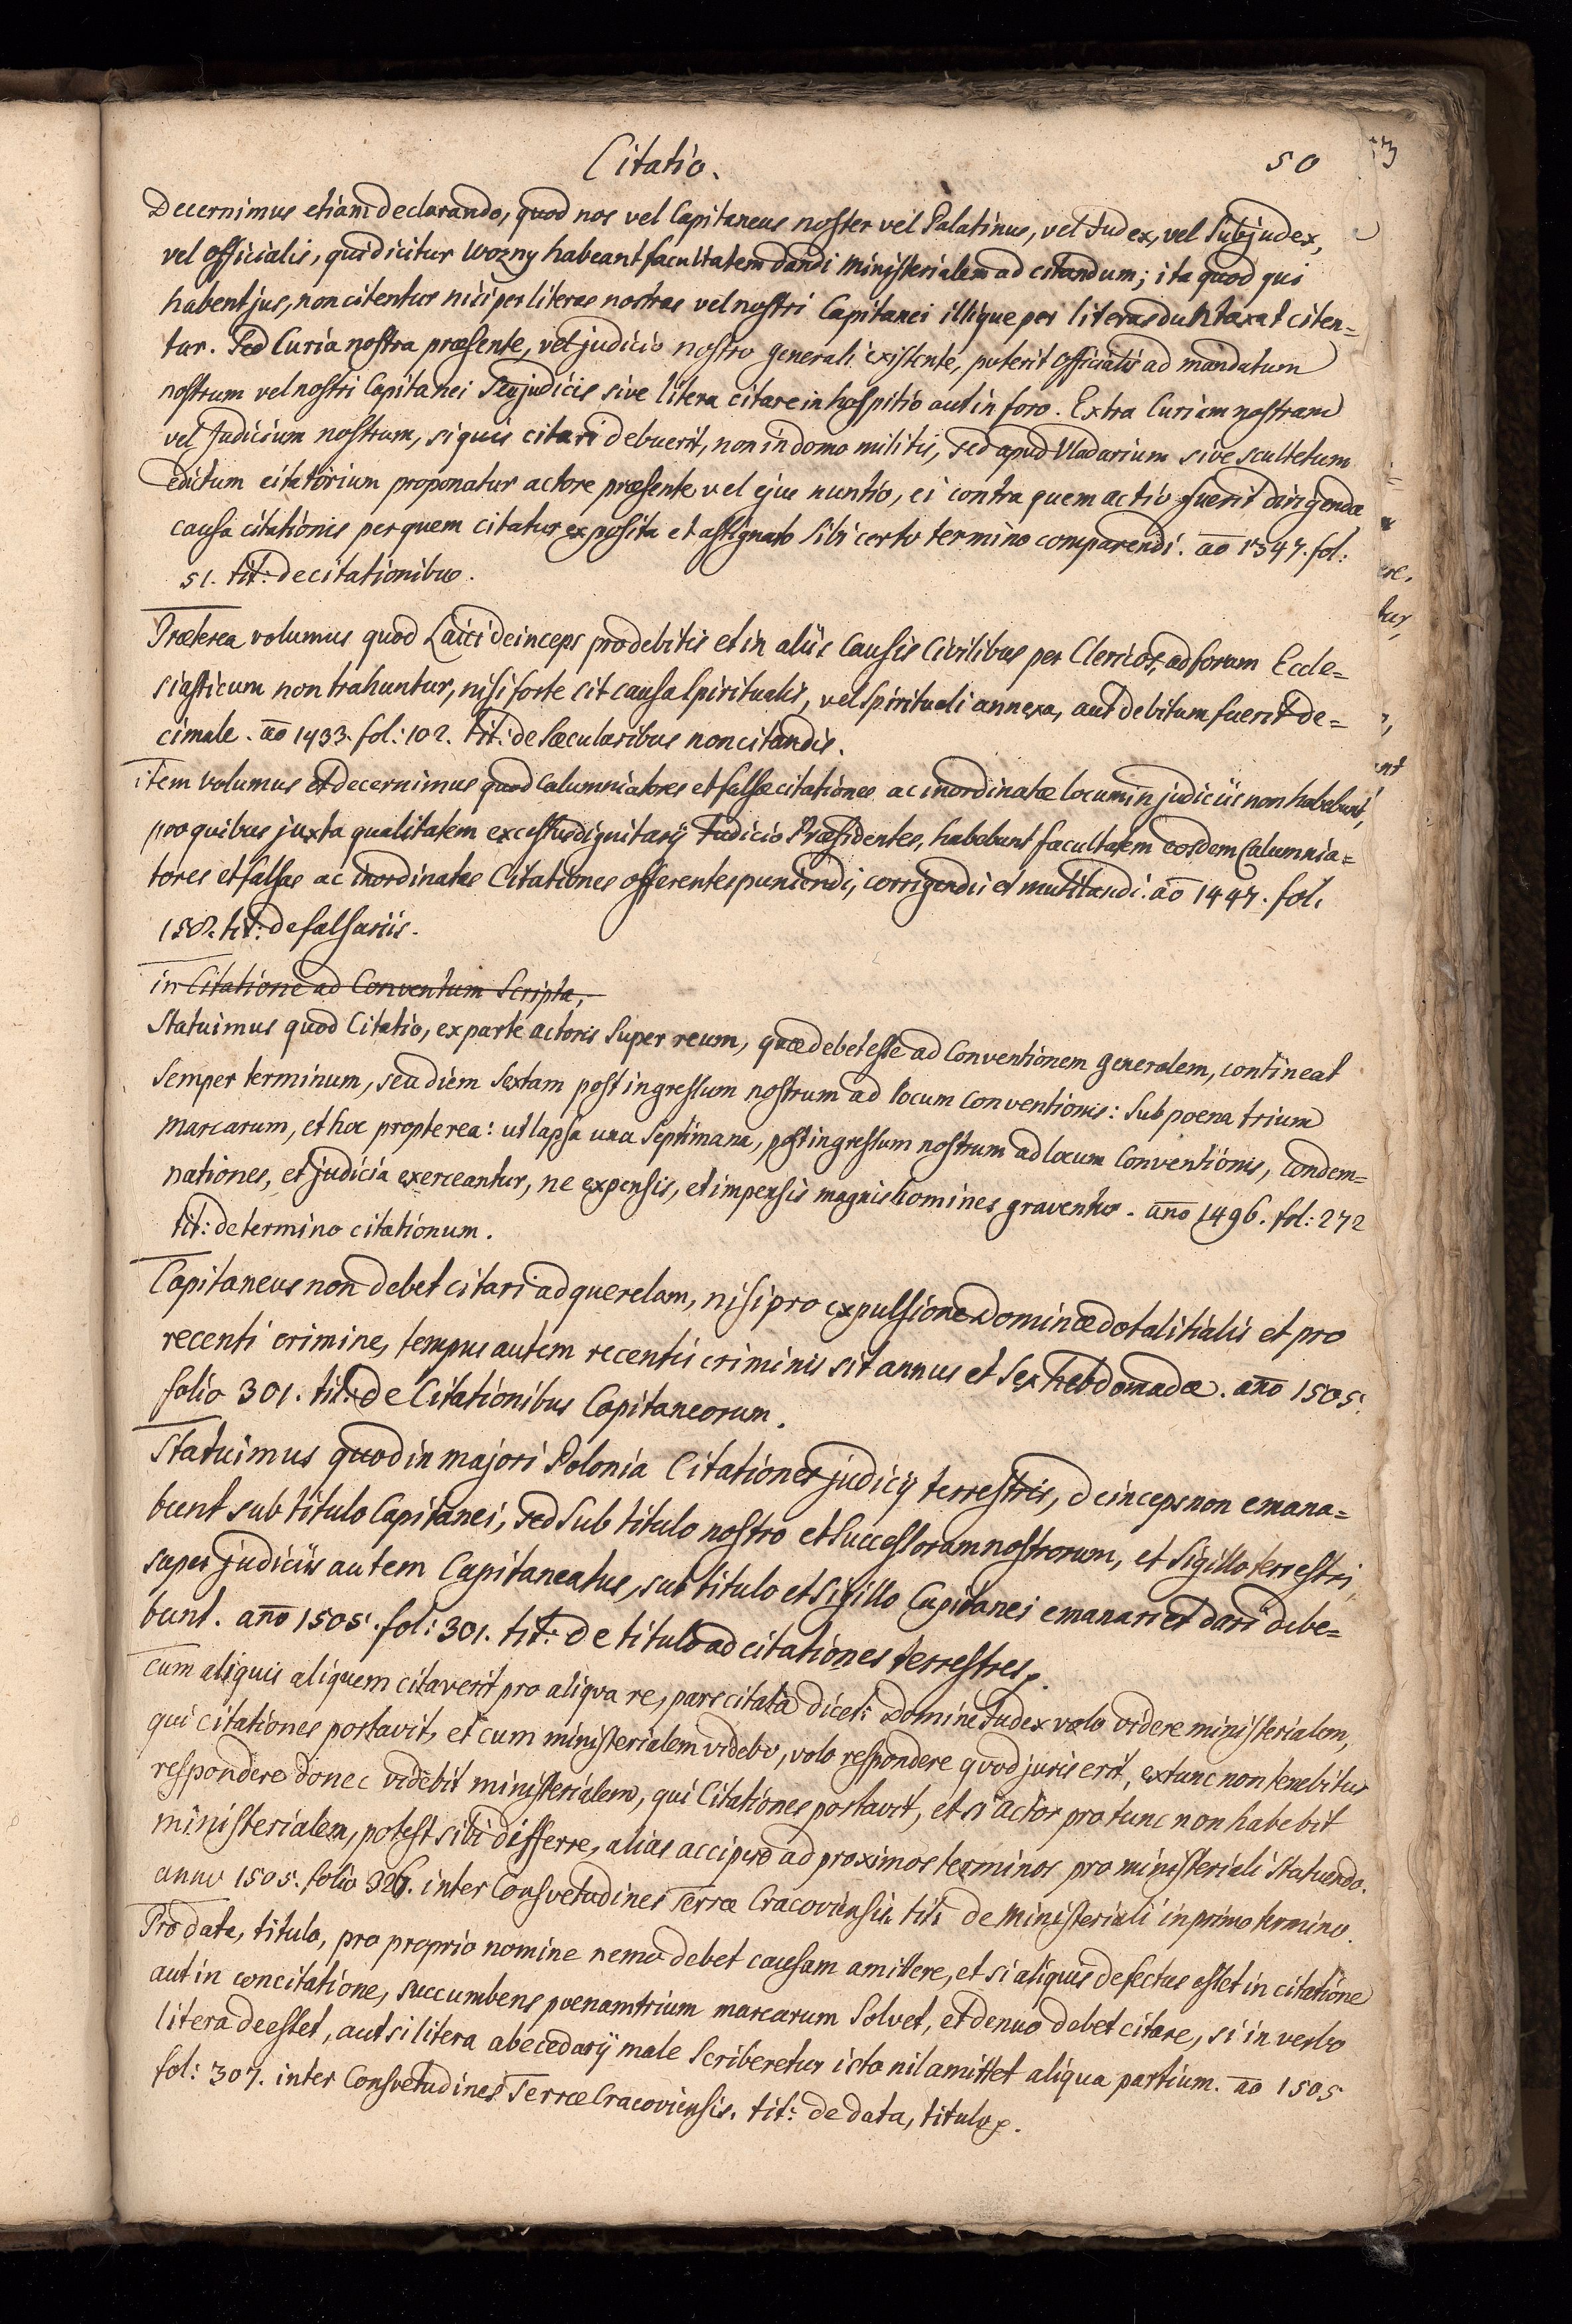 Citatio. 50
Decernimus etiam declarando, quod nos vel Capitaneus noster vel Palatinus, vel Judex, vel Subjudex,
vel officialis, qui dicitur Wozny habeant facultatem dandi Ministerialem ad citandum; ita quod qui
habent jus, non citentur nisi per literas nostras vel nostri Capitanei illique per literas duntaxat citen=
tur. Sed Curia nostra præsente, vel judicio nostro generali existente, poterit officialis ad mandatum
nostrum vel nostri Capitanei seu judicis sive litera citare in hospitio aut in foro. Extra Curiam nostram
vel Judicium nostrum, si quis citari debuerit, non in domo militis, sed apud Vladarium sive scultetum
edictum citatorium proponatur actore præsente vel ejus nuntio, ei contra quem actio fuerit dirigenda
causa citationis per quem citatur exposita et assignato sibi certo termino comparendi. ao 1347. fol:
51. tit: de citationibus.
Præterea volumus quod Laici deinceps pro debitis et in aliis Causis Civilibus per Clericos, ad forum Eccle=
siasticum non trahuntur, nisi forte sit causa Spiritualis, vel Spirituali annexa, aut debitum fuerit de=
cimale. ao 1433. fol: 102. tit: de Sæcularibus non citandis.
item volumus et decernimus quod calumniatores et falsæ citationes ac inordinatæ locum in judiciis non habebunt,
pro quibus juxta qualitatem excessus dignitarij Judicio Præsidentes, habebunt facultatem eosdem Calumnia=
tores et falsas ac inordinatas Citationes offerentes puniendi, corrigendi et mutilandi. ao 1447. fol.
150. tit: de falsariis.
in Citatione ad Conventum Scripta,
Statuimus quod Citatio, ex parte actoris super reum, quæ debet esse ad Conventionem generalem, contineat
semper terminum, seu diem sextam post ingressum nostrum ad locum Conventionis: sub poena trium
marcarum, et hoc propterea: ut lapsa una Septimana, post ingressum nostrum ad locum Conventionis, Condem=
nationes, et judicia exerceantur, ne expensis, et impensis magnis homines graventur. año 1496. fol: 272
tit: de termino citationum.
Capitaneus non debet citari ad querelam, nisi pro expulsione Dominæ dotalitialis et pro
recenti crimine, tempus autem recentis criminis sit annus et Sex hebdomadæ. año 1505.
folio 301. tit: de Citationibus Capitaneorum.
Statuimus quod in majori Polonia Citationes judicij terrestris, deinceps non emana=
bunt sub titulo Capitanei, sed sub titulo nostro et Successorum nostrorum, et Sigillo terrestri,
super judiciis autem Capitaneatus, sub titulo et Sigillo Capitanei emanari et dari debe=
bunt. año 1505. fol: 301. tit: de titulo ad citationes terrestres.
Cum aliquis aliquem citaverit pro aliqva re, pars citata dicet: Domine Judex volo videre ministerialem,
qui citationes portavit, et cum ministerialem videbo, volo respondere quod juris erit, extunc non tenebitur
respondere donec videbit ministerialem, qui Citationes portavit, et si actor pro tunc non habebit
ministerialem, potest sibi differre, alias accipere ad proximos terminos pro ministeriali statuendo.
anno 1505. folio 326. inter Consvetudines Terræ Cracoviensis. tit: de Ministeriali in primo termino.
Pro data, titulo, pro proprio nomine nemo debet causam amittere, et si aliquis defectus esset in citatione
aut in concitatione, succumbens poenam trium marcarum Solvet, et denuo debet citare, si in verbo
litera deesset, aut si litera abecedarij male Scriberetur isto nil amittet aliqua partium. ao 1505
fol: 307. inter Consvetudines Terræ Cracoviensis. tit: de data, titulo